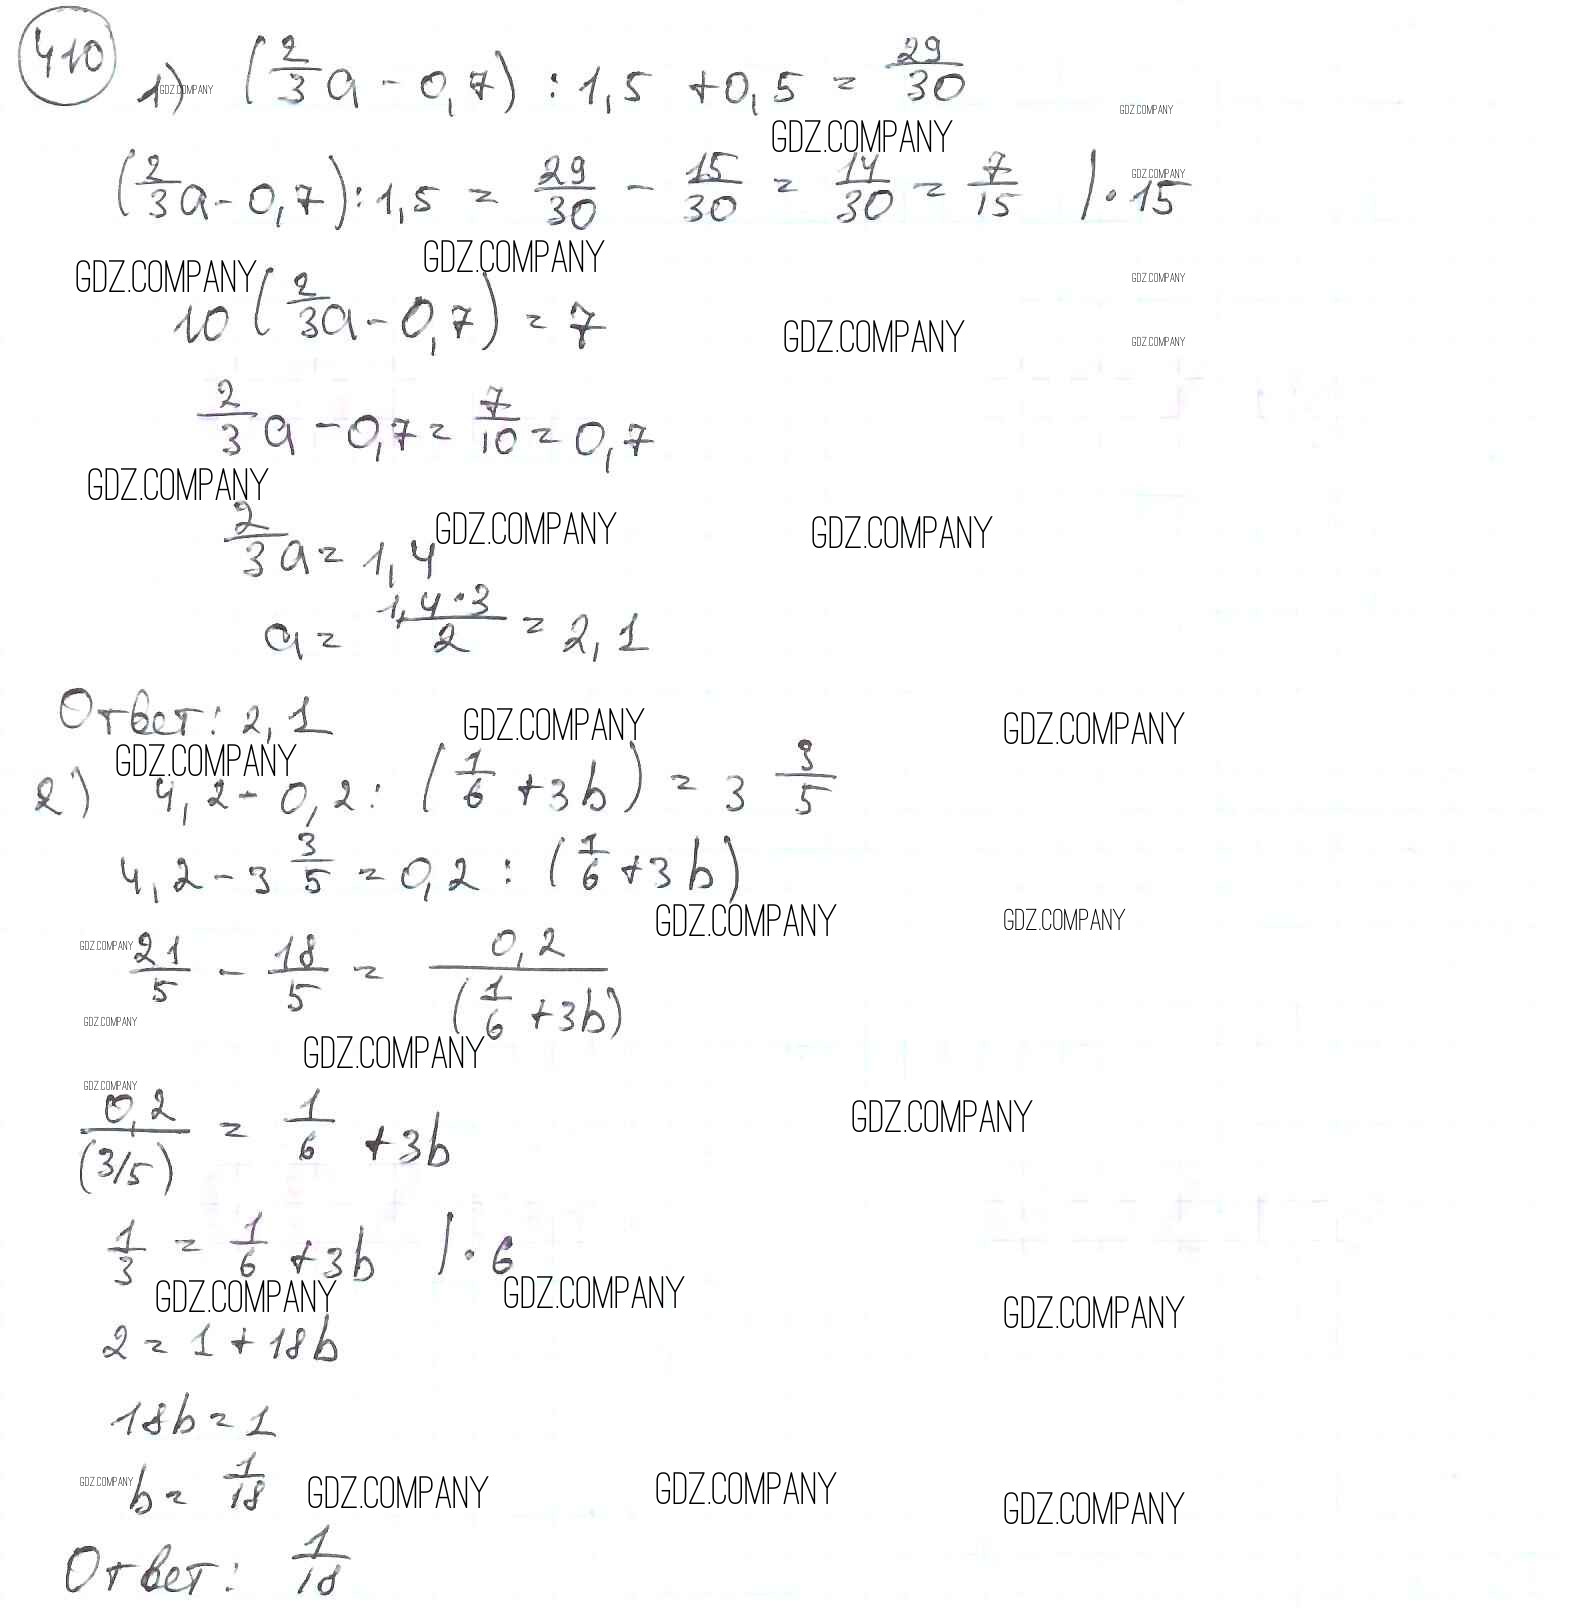 410
1) (2/3 a - 0,7) : 1,5 + 0,5 = 29/30
GDZ.COMPANY
GDZ.COMPANY
GDZ.COMPANY
(2/3 a - 0,7) : 1,5 = 29/30 - 15/30 = 14/30 = 7/15 | · 15
GDZ.COMPANY
GDZ.COMPANY
GDZ.COMPANY
GDZ.COMPANY
10 (2/3 a - 0,7) = 7
GDZ.COMPANY
GDZ.COMPANY
2/3 a - 0,7 = 7/10 = 0,7
GDZ.COMPANY
2/3 a = 1,4
GDZ.COMPANY
GDZ.COMPANY
a = 1,4·3/2 = 2,1
Ответ: 2,1
GDZ.COMPANY
GDZ.COMPANY
GDZ.COMPANY
2) 4,2 - 0,2 : (1/6 + 3b) = 3 3/5
4,2 - 3 3/5 = 0,2 : (1/6 + 3b)
GDZ.COMPANY
GDZ.COMPANY
GDZ.COMPANY
21/5 - 18/5 = 0,2/(1/6 + 3b)
GDZ.COMPANY
GDZ.COMPANY
GDZ.COMPANY
0,2/(3/5) = 1/6 + 3b
GDZ.COMPANY
1/3 = 1/6 + 3b | · 6
GDZ.COMPANY
GDZ.COMPANY
GDZ.COMPANY
2 = 1 + 18b
18b = 1
GDZ.COMPANY
b = 1/18
GDZ.COMPANY
GDZ.COMPANY
GDZ.COMPANY
Ответ: 1/18